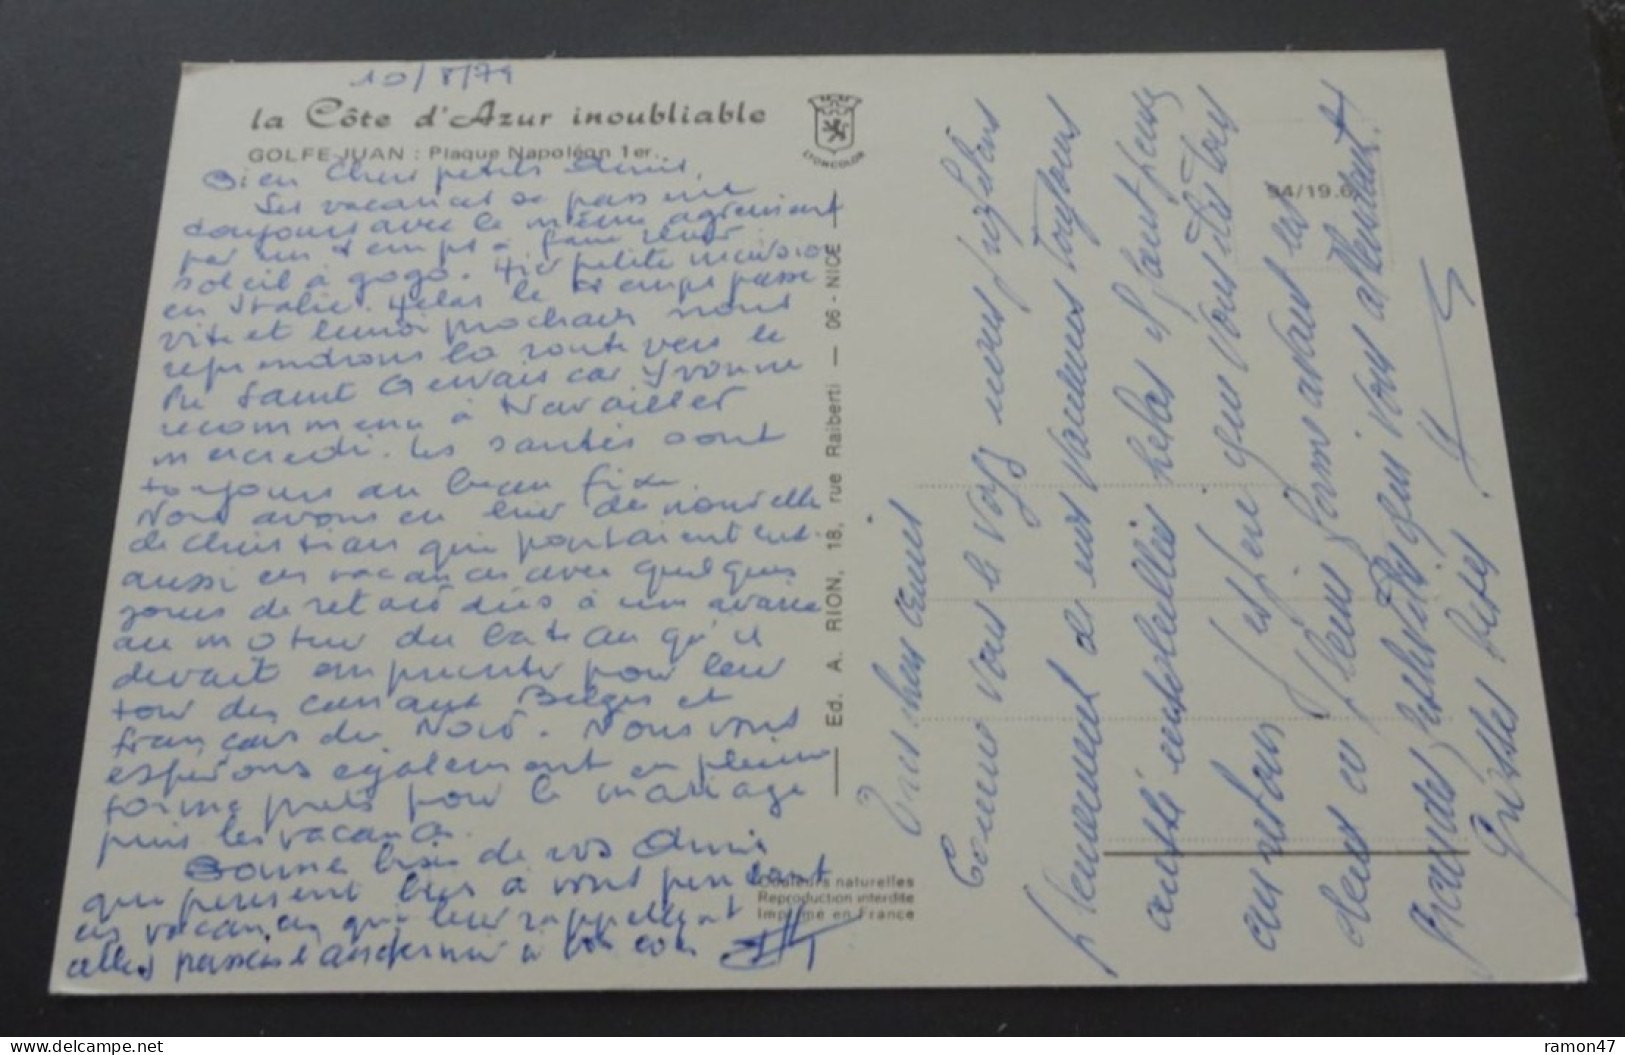 10/8/79
la Côte d'Azur inoubliable
GOLFE-JUAN : Plaque Napoléon 1er.
LYONCOLOR
94/19.6
Bien Chers petits Amis,
Les vacances se passent
toujours avec le même agrément
par un temps à faire rêver
soleil à gogo. Hier petite incursion
en Italie. Hélas le temps passe
vite et lundi prochain nous
reprendrons la route vers le
Pré Saint Gervais car Yvonne
recommence à travailler
mercredi. Les santés sont
toujours au beau fixe.
Nous avons eu hier des nouvelles
de Christian qui partaient eux
aussi en vacances avec quelques
jours de retard dûs à une avarie
au moteur du bateau qu'il
devait emprunter pour leur
tour des canaux Belges et
français du Nord. Nous vous
espérons également en pleine
forme prêts pour le mariage
puis les vacances.
Bonne bises de vos Amis
que pensent bien à vous pendant
ces vacances qui leur rappellent
celles passées à vos côtés
Ed. A. RION, 18, rue Raiberti — 06 - NICE
Couleurs naturelles
Reproduction interdite
Imprimé en France
Très chers Amis
Comme vous le voyez nous profitons
pleinement de nos vacances toujours
aussi ensoleillées hélas il faut penser
au retour. J'espère que vous êtes tous
deux en pleine forme avant les
grandes festivités qui vous attendent!
Grosses bises.
ramon47